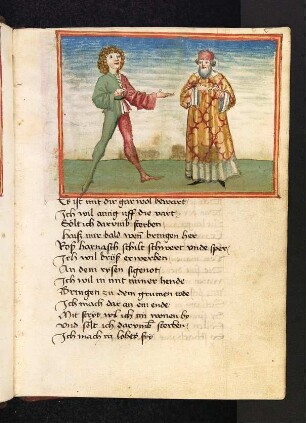 Es ist mit dir gar wol bewart
Ich wil  uff die vart
Sölt ich darumb sterben
 mir bald  bringen her
Roß harnasch schilt schwert unde sper
Ich wil  erwerben
An dem rysen sigenot
Ich wil in mit miner hende
Bringen zu dem grimen tode
Ich mach dat an em ende
Mit stryt wil ich im wonen by
Und sölt ich darumb sterben
Ich mach  fry